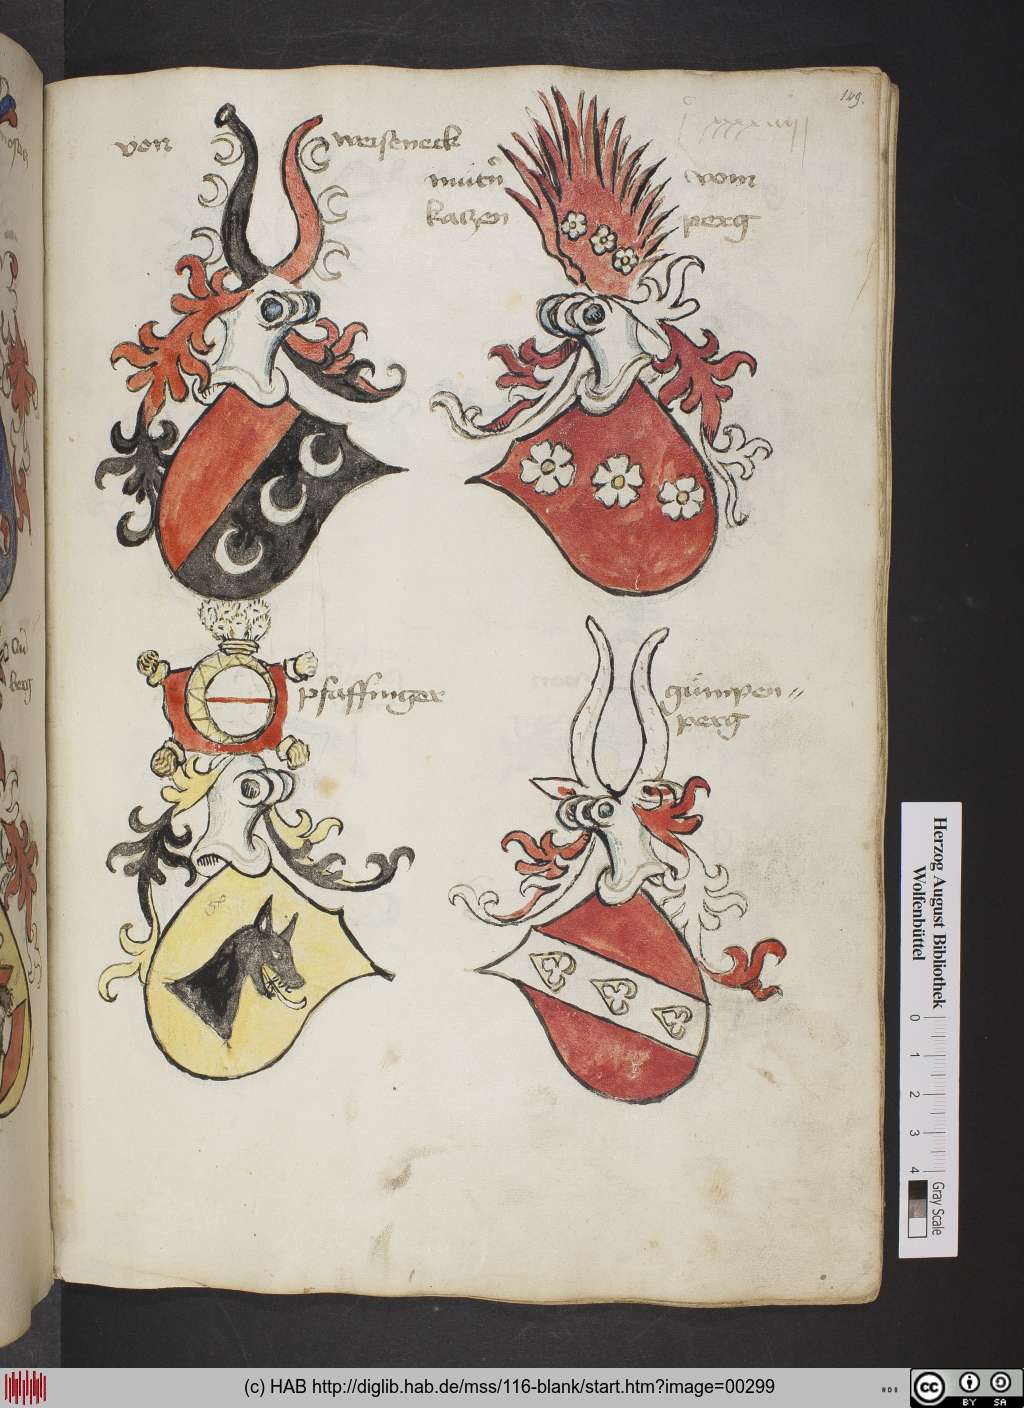 149.
von weiseneck
vom
kaczen perg
pfaffinger
gümpen〃
perg
perg
Herzog August Bibliothek
Wolfenbüttel
0 1 2 3 4
Gray Scale
(c) HAB http://diglib.hab.de/mss/116-blank/start.htm?image=00299
cc BY SA